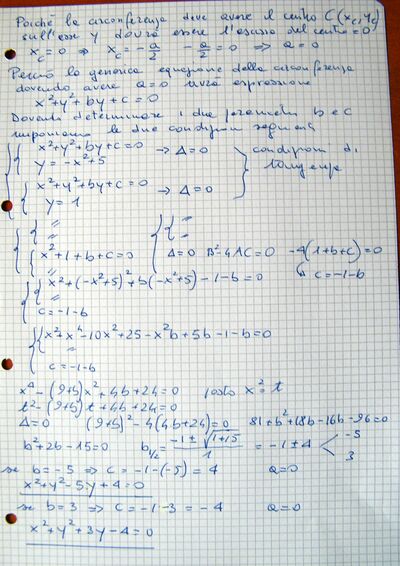 Poiché la circonferenza deve avere il centro C(xc, yc)
sull'asse y dovrà essere l'ascissa del centro = 0
xc = 0 ⇒ xc = -a/2   -a/2 = 0 ⇒ a = 0
Perciò la generica equazione della circonferenza
dovendo avere a=0 avrà espressione
x²+y²+by+c=0
Dovendo determinare i due parametri b e c
imponiamo le due condizioni seguenti
{ { x²+y²+by+c=0 → Δ=0 } condizioni di
y = -x²+5 tangenza
{ x²+y²+by+c=0 → Δ=0
y = 1
{ { // { { //
{ // { =
{ x²+1+b+c=0 { Δ=0 B²-4AC=0 -4(1+b+c)=0
↳ c=-1-b
{ { x²+(-x²+5)²+b(-x²+5)-1-b=0
//
c=-1-b
{ { x²+x⁴-10x²+25-x²b+5b-1-b=0
=
c=-1-b
x⁴-(9+b)x²+4b+24=0 posto x²=t
t²-(9+b)t+4b+24=0
Δ=0 (9+b)²-4(4b+24)=0 81+b²+18b-16b-96=0
b²+2b-15=0 b1/2 = (-1±√(1+15))/1 = -1±4 < -5
3
se b=-5 ⇒ c=-1-(-5)=4 a=0
x²+y²-5y+4=0
se b=3 ⇒ c=-1-3=-4 a=0
x²+y²+3y-4=0